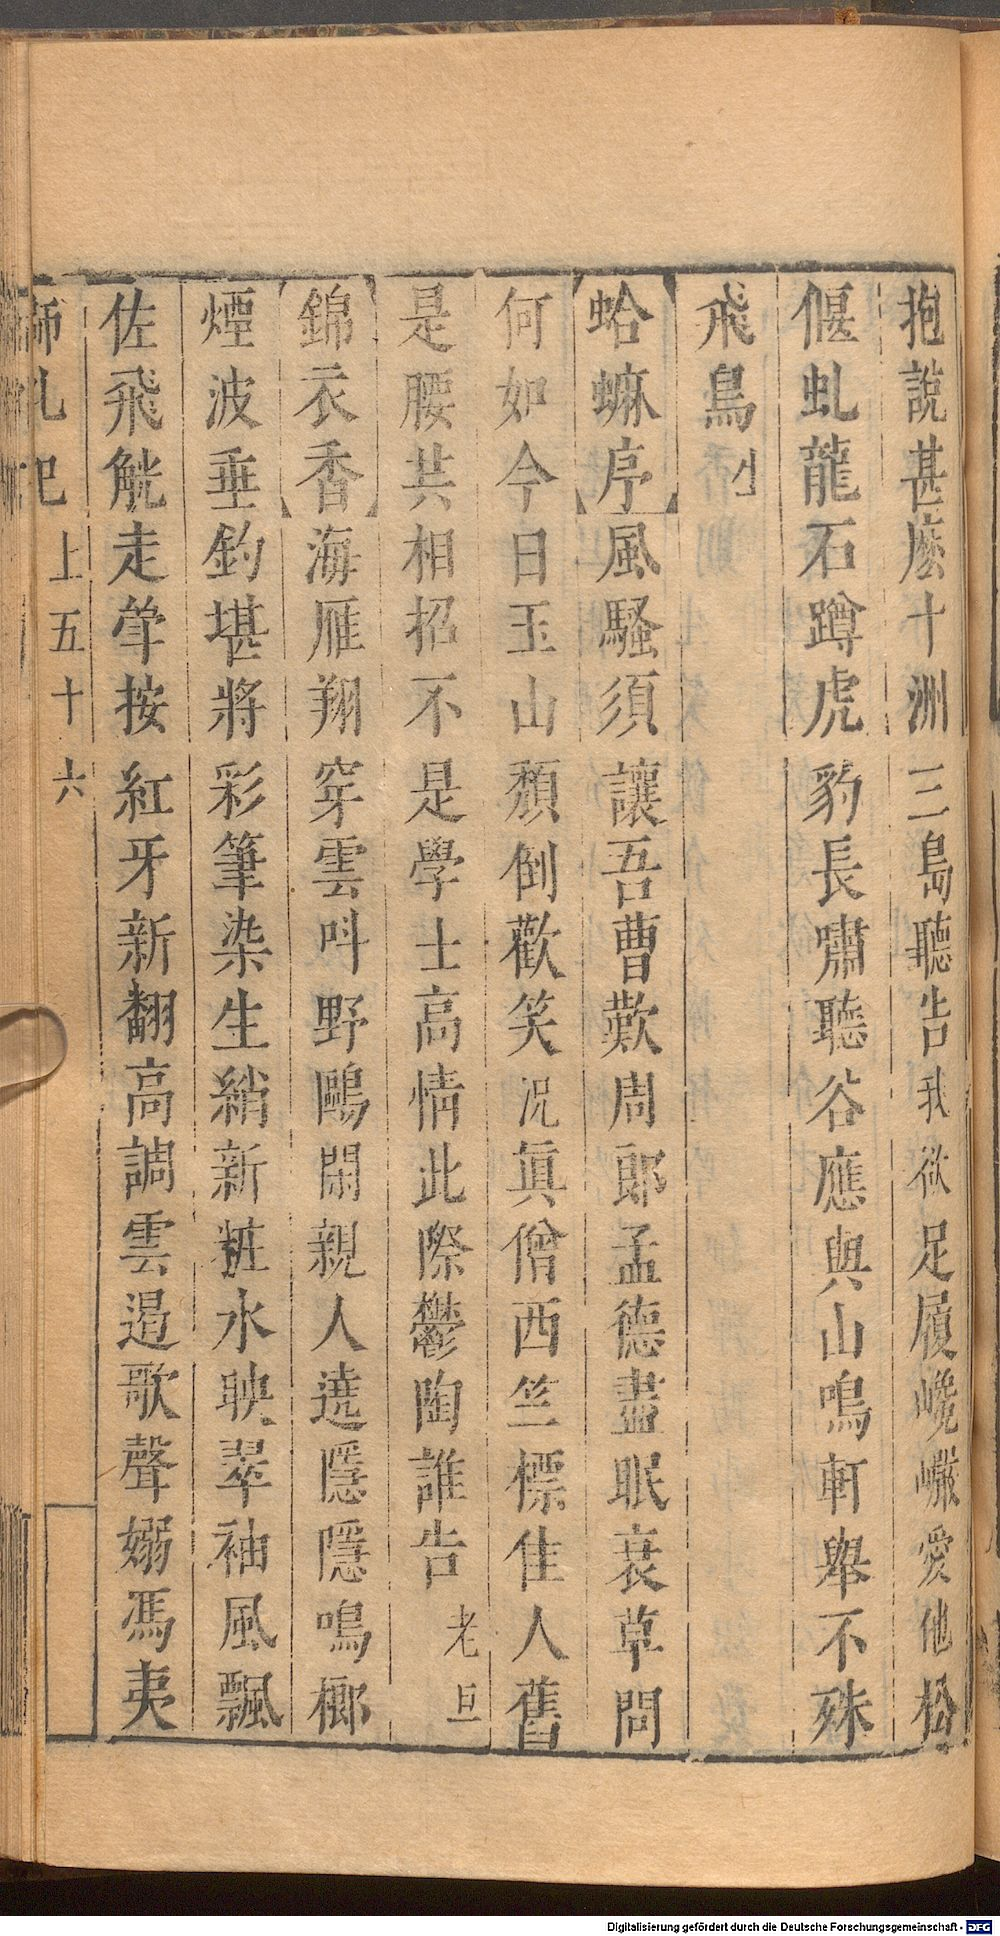 抱說甚麽十洲三島聽告我欲足履巉巗愛他松
偃虬龍石蹲虎豹長嘯聽谷應與山鳴軒舉不殊
飛鳥小
蛤蟆序風騷須讓吾曹歎周郎孟德盡眠衰草問
何如今日玉山頹倒歡笑況眞僧西竺標佳人舊
是腰共相招不是學士高情此際鬱陶誰告老旦
錦衣香海雁翔穿雲呌野鷗閑親人遶隱隱鳴榔
煙波垂釣堪將彩筆染生綃新粧水映翠袖風飄
佐飛觥走斝按紅牙新翻高調雲遏歌聲嫋馮夷
上五十六
Digitalisierung gefördert durch die Deutsche Forschungsgemeinschaft - DFG